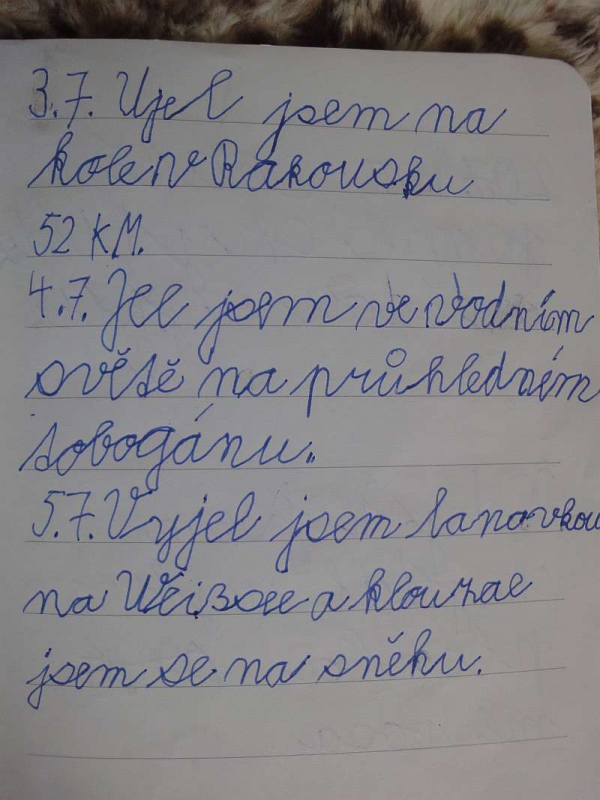 3.7. Ujel jsem na
kole v Rakousku
52 KM.
4.7. Jel jsem ve vodním
světě na průhledném
tobogánu.
5.7. Vyjel jsem lanovkou
na a klouzal
jsem se na sněhu.